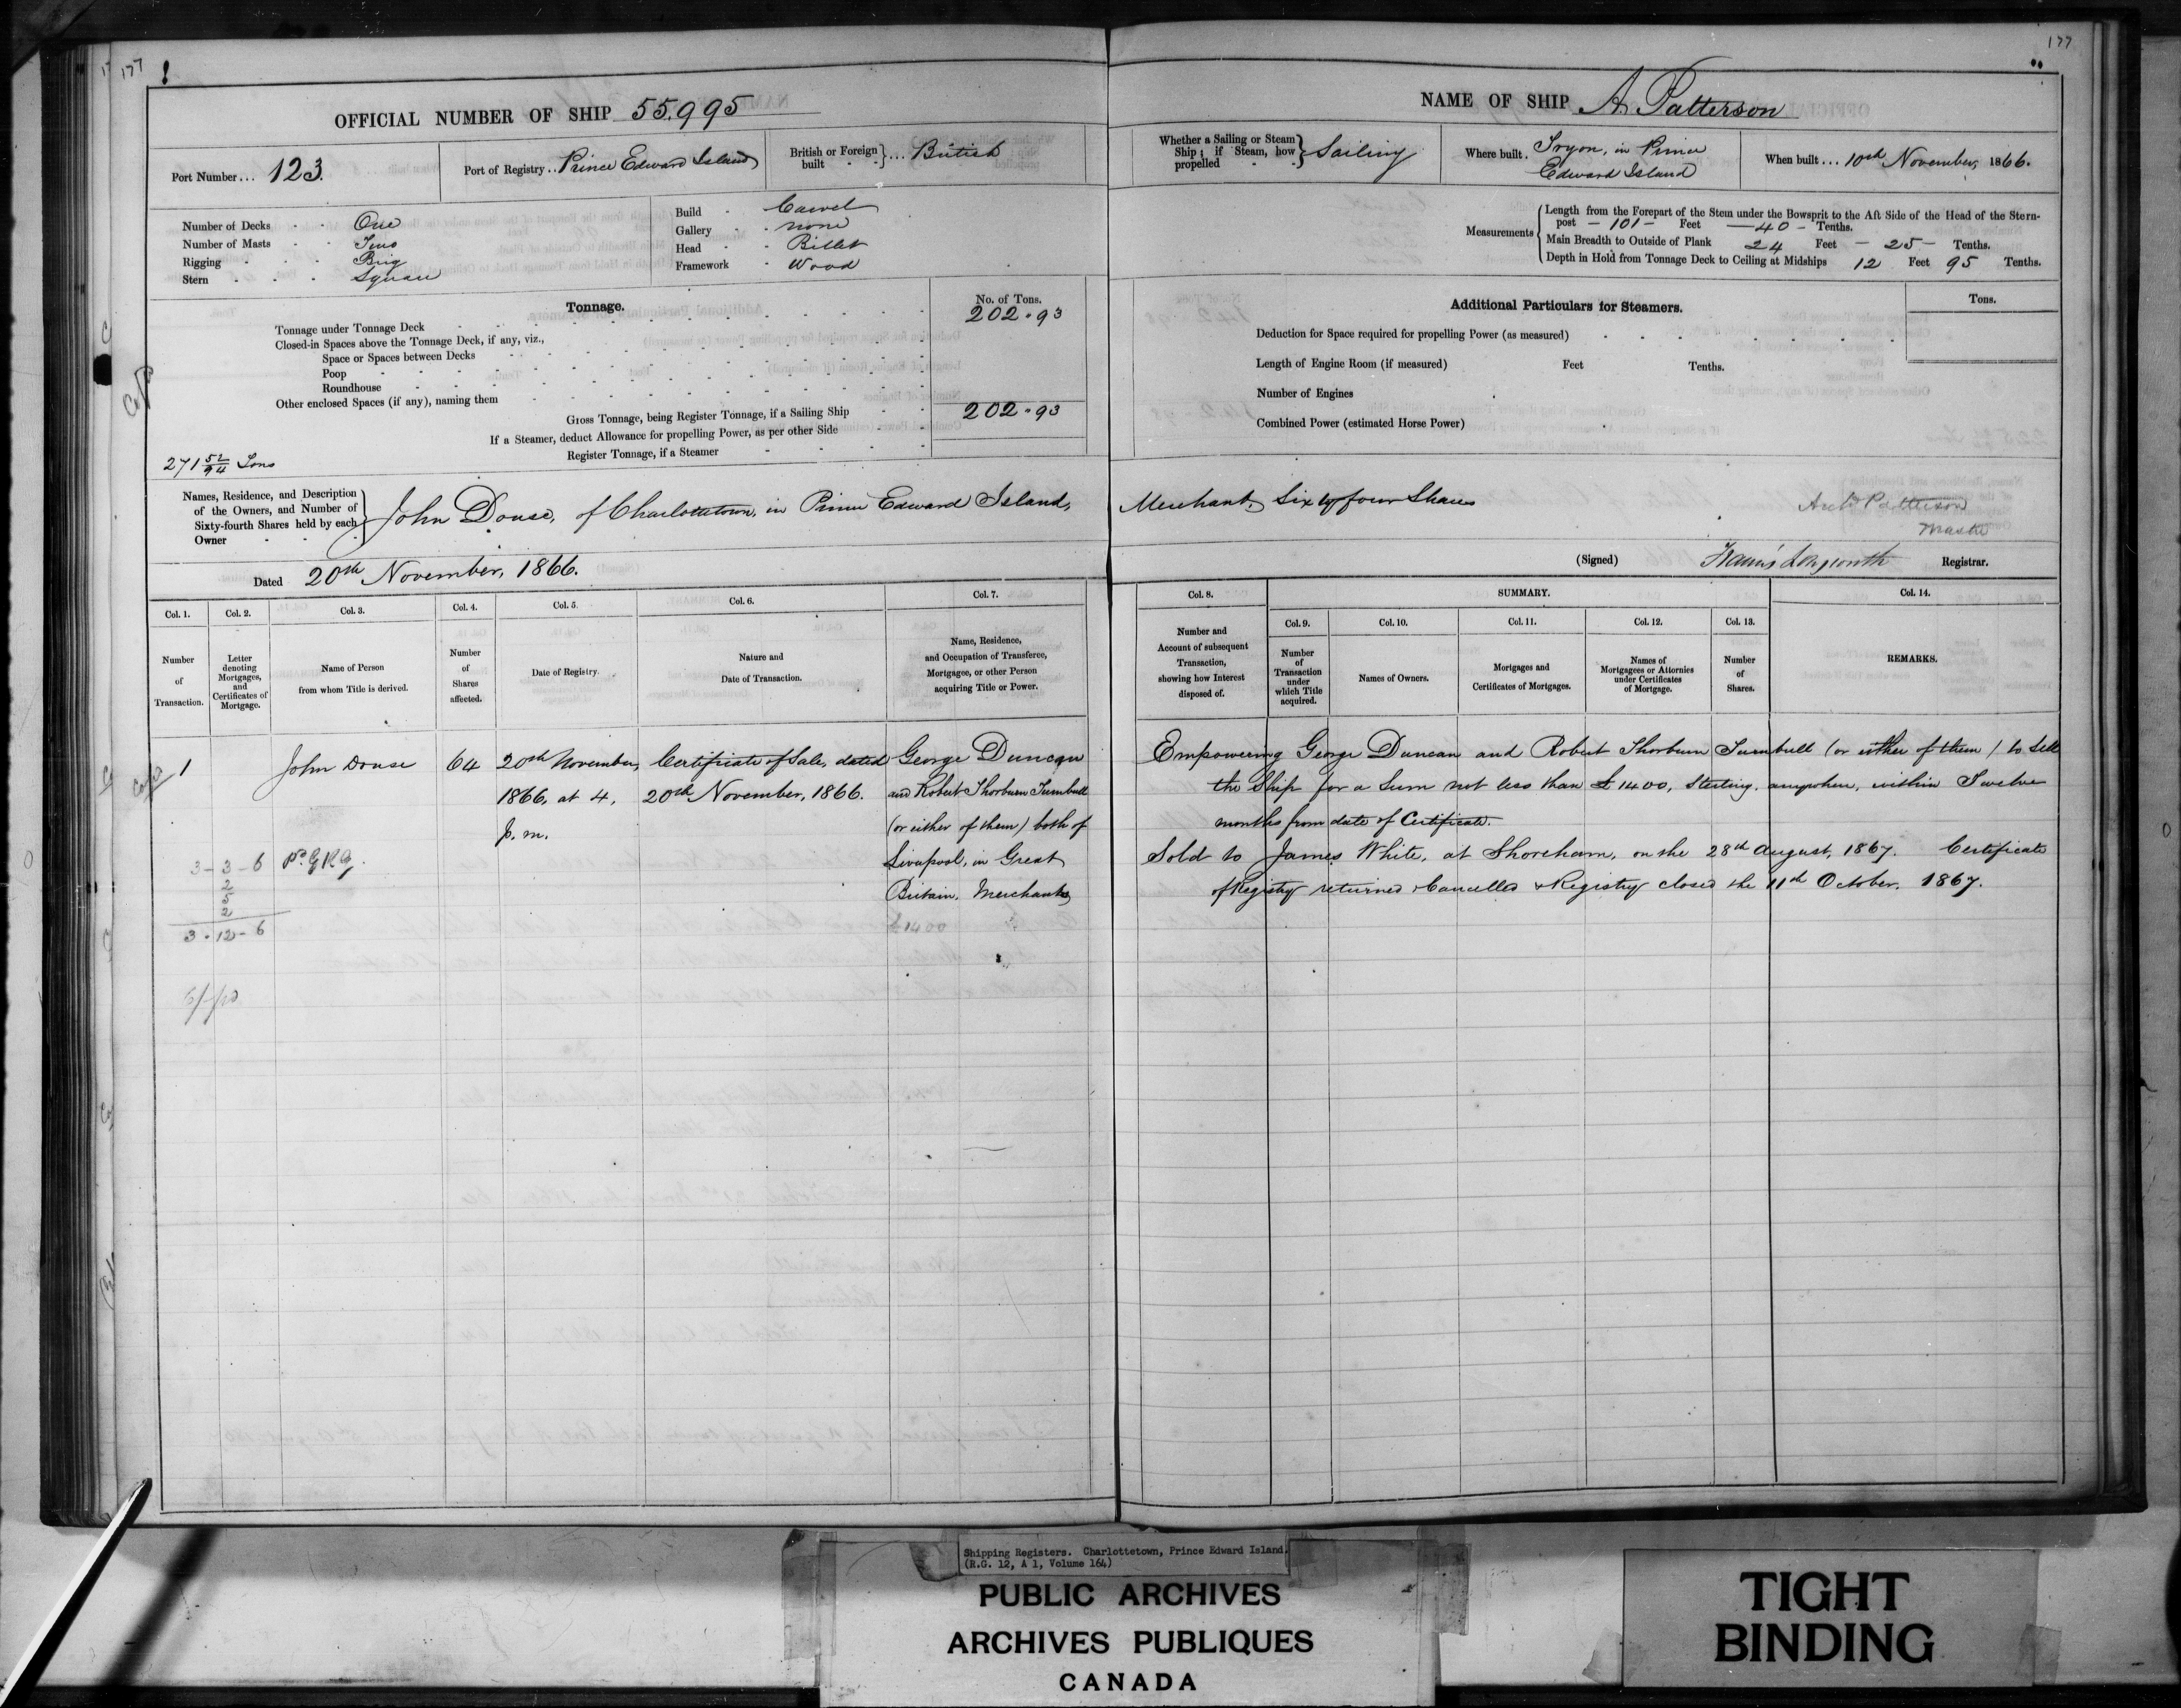 177
177
OFFICIAL NUMBER OF SHIP 55.995
Port Number... 123.
Port of Registry.. Prince Edward Island
British or Foreign built } ... British
Number of Decks - - One
Number of Masts - - Two
Rigging - - - Brig
Stern - - - Square
Build - - Carvel
Gallery - - none
Head - - Billet
Framework - Wood
Tonnage.
No. of Tons.
Tonnage under Tonnage Deck 202 . 93
Closed-in Spaces above the Tonnage Deck, if any, viz.,
Space or Spaces between Decks
Poop
Roundhouse
Other enclosed Spaces (if any), naming them
Gross Tonnage, being Register Tonnage, if a Sailing Ship 202 . 93
If a Steamer, deduct Allowance for propelling Power, as per other Side
Register Tonnage, if a Steamer
271 52/94 Tons
Names, Residence, and Description of the Owners, and Number of Sixty-fourth Shares held by each Owner } John Douse, of Charlottetown, in Prince Edward Island,
Dated 20th November, 1866.
NAME OF SHIP A. Patterson
Whether a Sailing or Steam Ship; if Steam, how propelled } Sailing
Where built. Tryon, in Prince Edward Island
When built... 10th November, 1866.
Measurements
Length from the Forepart of the Stem under the Bowsprit to the Aft Side of the Head of the Stern-
post - 101 - Feet - 40 - Tenths.
Main Breadth to Outside of Plank 24 Feet - 25 - Tenths.
Depth in Hold from Tonnage Deck to Ceiling at Midships 12 Feet 95 Tenths.
Additional Particulars for Steamers.
Tons.
Deduction for Space required for propelling Power (as measured)
Length of Engine Room (if measured) Feet Tenths.
Number of Engines
Combined Power (estimated Horse Power)
Merchant, Sixty four Shares
Arcd Patterson
Master
(Signed) Francis Longworth Registrar.
Col. 1. Col. 2. Col. 3. Col. 4. Col. 5. Col. 6. Col. 7.
Number of Transaction.
Letter denoting Mortgages, and Certificates of Mortgage.
Name of Person from whom Title is derived.
Number of Shares affected.
Date of Registry.
Nature and Date of Transaction.
Name, Residence, and Occupation of Transferee, Mortgagee, or other Person acquiring Title or Power.
Col. 8. SUMMARY. Col. 14.
Col. 9. Col. 10. Col. 11. Col. 12. Col. 13.
Number and Account of subsequent Transaction, showing how Interest disposed of.
Number of Transaction under which Title acquired.
Names of Owners.
Mortgages and Certificates of Mortgages.
Names of Mortgagees or Attornies under Certificates of Mortgage.
Number of Shares.
REMARKS.
1
John Douse
64
20th November,
1866, at 4,
p.m.
Certificate of Sale, dated
20th November, 1866.
George Duncan
and Robert Thorburn Turnbull
(or either of them) both of
Liverpool, in Great
Britain, Merchants
£1400
3 - 3 - 6
2
5
2
3 . 12 - 6
Empowering George Duncan and Robert Thorburn Turnbull (or either of them) to sell
the Ship for a Sum not less than £1400, Sterling, anywhere, within Twelve
months from date of Certificate.
Sold to James White, at Shoreham, on the 28th August, 1867. Certificate
of Registry returned Cancelled & Registry closed the 11th October, 1867.
Shipping Registers. Charlottetown, Prince Edward Island.
(R.G. 12, A 1, Volume 164)
PUBLIC ARCHIVES
ARCHIVES PUBLIQUES
CANADA
TIGHT
BINDING